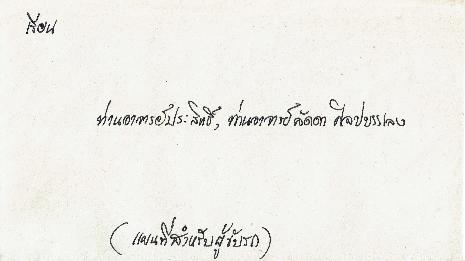 เรียน
ท่านอาจารย์ประสิทธิ์, ท่านอาจารย์ลัดดา ศิลปบรรเลง
(แผนที่สำหรับผู้ขับรถ)